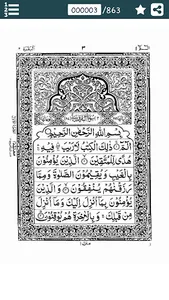 000003 /863
٣
بِسْمِ اللّٰهِ الرَّحْمٰنِ الرَّحِيْمِ
الٓمّٓ ذٰلِكَ الْكِتٰبُ لَا رَيْبَ فِيْهِ
هُدًى لِّلْمُتَّقِيْنَ الَّذِيْنَ يُؤْمِنُوْنَ
بِالْغَيْبِ وَيُقِيْمُوْنَ الصَّلٰوةَ وَمِمَّا
رَزَقْنٰهُمْ يُنْفِقُوْنَ وَالَّذِيْنَ
يُؤْمِنُوْنَ بِمَآ اُنْزِلَ اِلَيْكَ وَمَآ اُنْزِلَ
مِنْ قَبْلِكَ وَبِالْاٰخِرَةِ هُمْ يُوْقِنُوْنَ